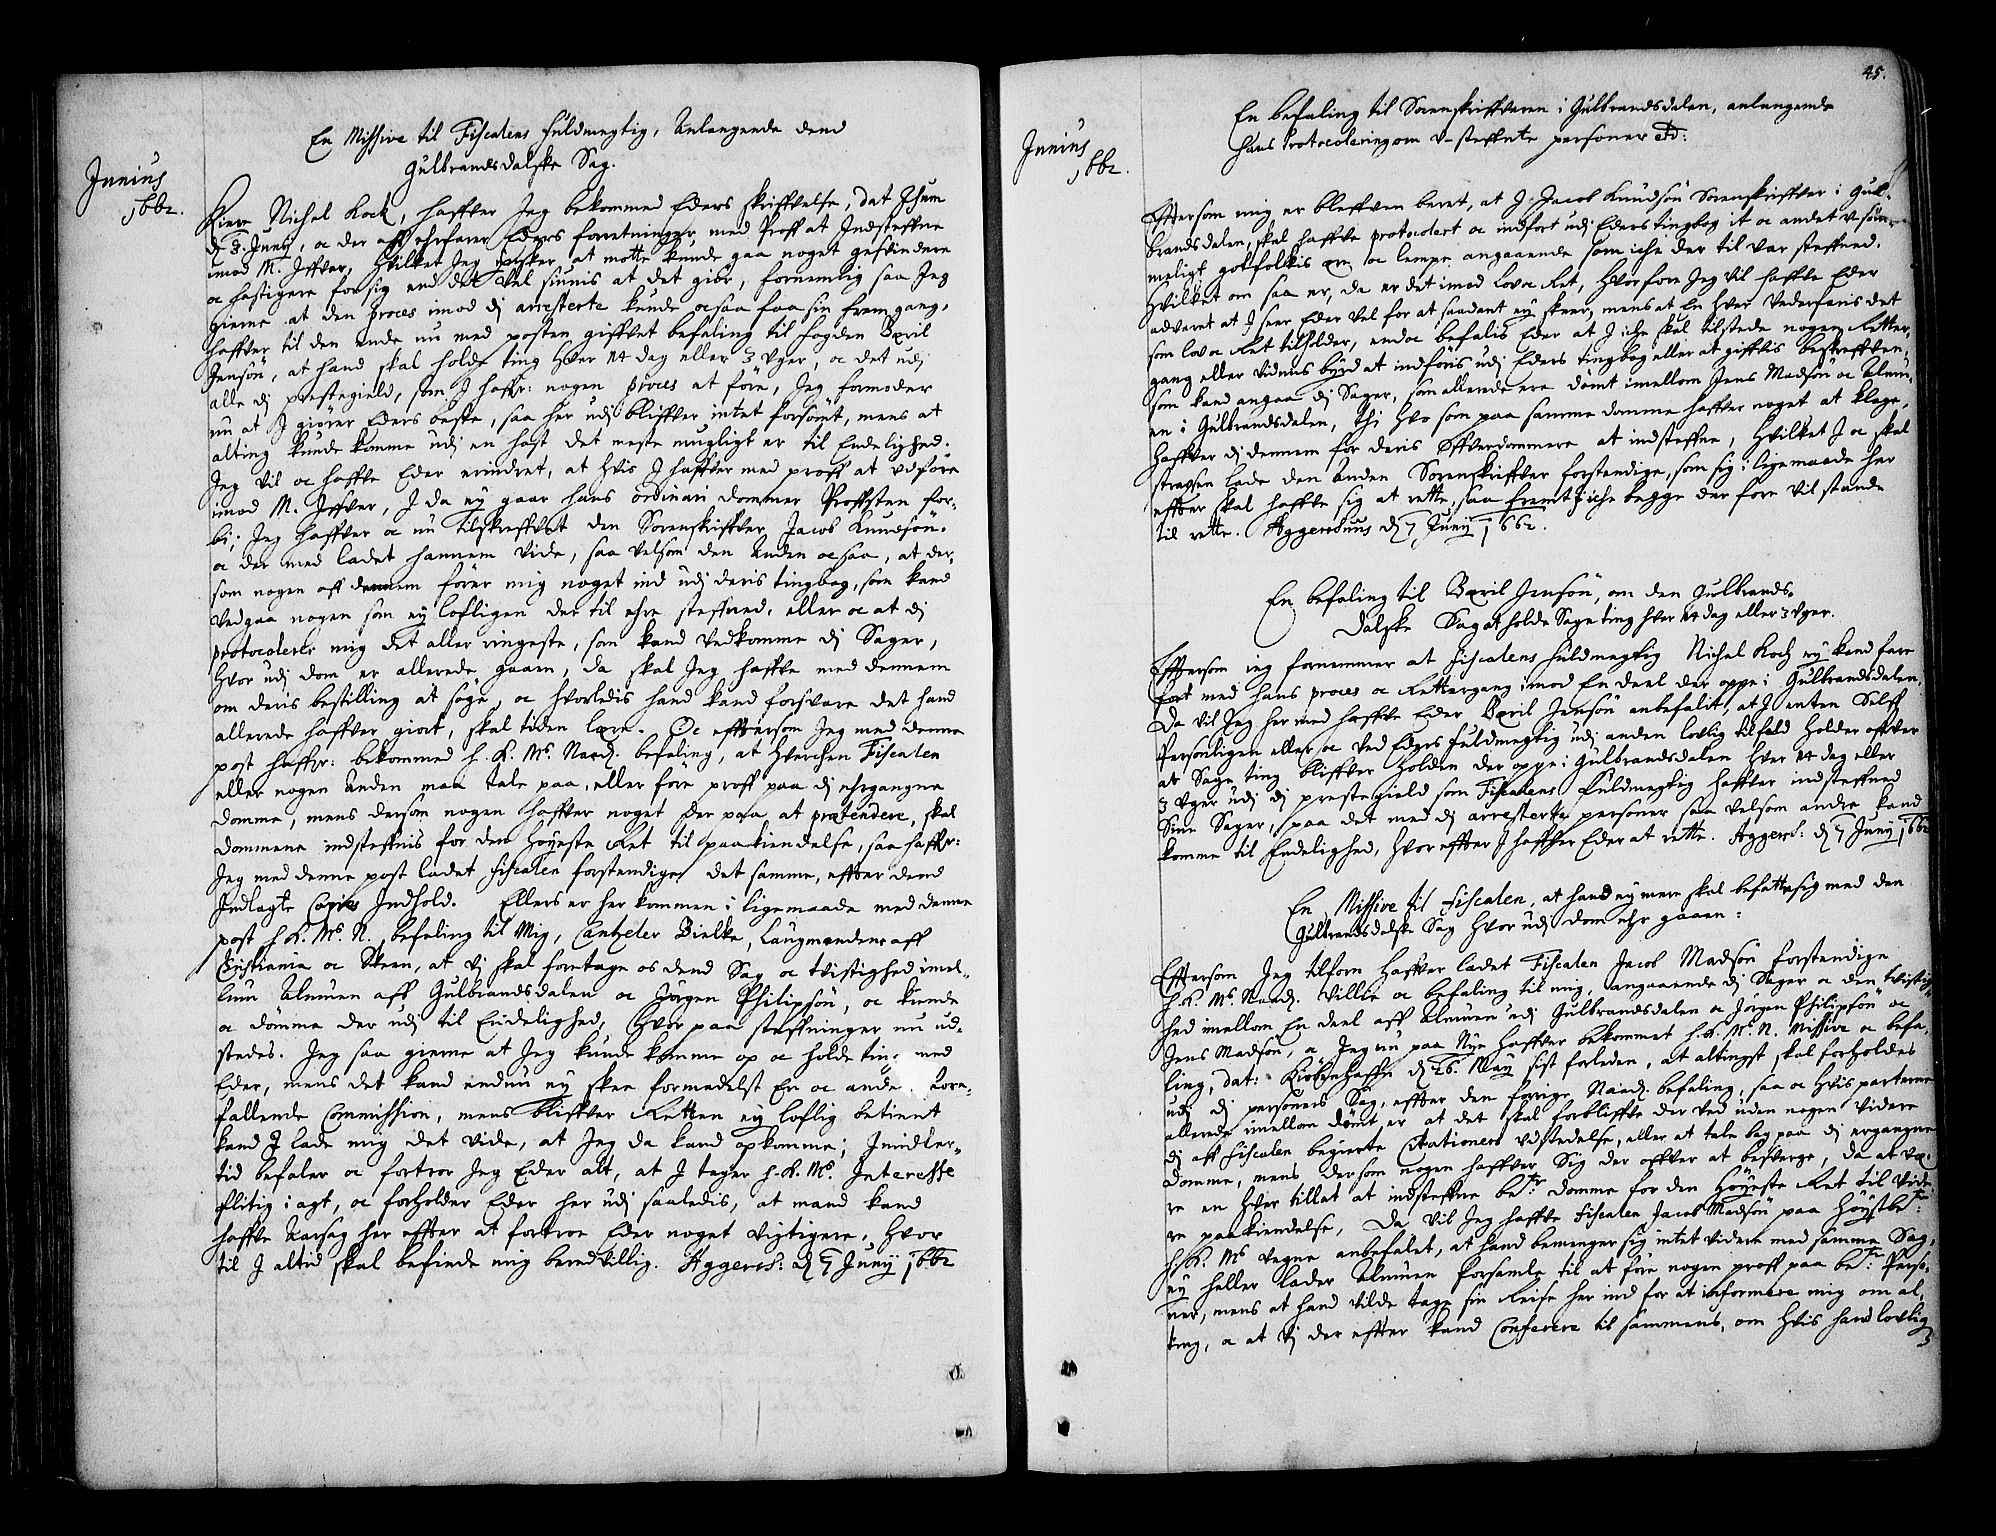 En Missive til Fiscalens fuldmegtig, Anlangende dend
Gulbrandsdalske Sag.
Junius
1662.
Kiere Nichel Kock, haffver Jeg bekommed Eders skriffvelse, dat
d 3. Juny, oc der aff ehrfarer Eders forretninger, med Proff at Indsteffne
imod M. Iffver, Hvilket Jeg ynsker at motte kunde gaa noget gesvindere
oc hastigere for sig end det Vel siunis at det giör, fornemlig saa Jeg
gierne at den proces imod dj arresterte kunde ocsaa faa sin fremgang,
haffver til den Ende nu med posten giffvet befaling til fogden Bæril
Jensön, at hand skal holde ting Hver 14 dag eller 3 Uger, oc det udj
alle dj prestegield, som J haffr: nogen proces at före, Jeg formoder
nu at J giörer Eders beste, saa her udj bliffver intet forsömt, mens at
alting kunde komme udj en hast det meste mugligt er til Endelighed.
Jeg vil oc haffve Eder erindret, at hvis J haffver med proff at udföre
imod M. Iffver, J da ey gaar hans ordinari dommer Proffsten for-
bi; Jeg haffver oc nu tilskreffvet den Sorenskriffver Jacob Knudsön.
oc der med ladet hannem vide, saa velsom den Anden ocsaa, at der-
som nogen aff dennem förer mig noget ind udj deris tingbog, som kand
vedgaa nogen som ey lofligen der til ehre steffned, eller oc at dj
protocolerer mig det aller ringeste, som kand vedkomme dj Sager,
Hvor udj dom er allerede gaaen, da skal Jeg haffve med dennem
om deris bestilling at söge, oc hvorledis hand kand forsvare det hand
allerede haffver giort, skal tiden lære. Oc effttersom Jeg med denne
post haffr: bekommed h. K. Ms. Naad. befaling, at Hverchen Fiscalen
eller nogen Anden maa tale paa, eller före proff paa dj ehrgangne
domme, mens dersom nogen haffver noget der paa at prætendere, skal
dommene indsteffnis for den Höyeste Ret til paakiendelse, saa haffr:
Jeg med denne post ladet fiscalen forstendiget det samme, effter dend
Indlagte Copies Indhold. Ellers er her kommen i ligemaade med denne
post h. K. Ms. N. befaling til Mig, Cantzeler Bielke, Laugmendene aff
Christiania oc Skeen, at Vj skal foretage os dend Sag oc tvistighed imel-
lum Almuen aff Gulbrandsdalen oc Jörgen Philipsön, oc kiende
oc dömme der udj til Endelighed, Hvor paa steffninger nu ud-
stedes. Jeg saa gierne at Jeg kunde komme op oc holde ting med
Eder, mens det kand endnu ey skee formedelst En oc anden fore-
fallende Commission, mens bliffver Retten ey loflig betient
kand J lade mig det vide, at Jeg da kand opkomme; Jmidler-
tid befaler oc fortror Jeg Eder alt, at J tager h. K. Ms. Interesse
flitig i agt, oc forholder Eder her udj saaledis, at mand kand
haffve Aarsag her effter at fortroe Eder noget vigtigere, Hvor
til J altid skal befinde mig beredvillig. Aggersh: d 7 Juny 1662
45.
En befaling til Sorenskriffveren i Gulbrandsdalen, anlangende
hans Protocolering om V-steffnte personer etc:
Junius
1662.
Effttersom mig er bleffven beret, at J Jacob Knudsön Sorenskriffver i Gul-
brandsdalen, skal haffve protocolert oc indfört udj Eders tingbog it oc andet V-söm-
meligt gotfolkis ære oc lempe angaaende som iche der til var steffned.
Hvilket om saa er, da er det imod Lov oc Ret, Hvorfore Jeg vil haffve Eder
advaret at J seer Eder Vel for at saadant ey skeer, mens at En Hver Vederfaris det
som lov oc Ret tilholder, endoc befalis Eder at J iche skal tilstede nogen Retter-
gang eller vidnis byrd at indföris udj Eders tingbog eller at giffvis beskreffven,
som kand angaa dj Sager, som allerede ere dömt imellom Jens Madsön oc Almu-
en i Gulbrandsdalen, Thi Hvo som paa samme domme haffver noget at klage,
haffver dj dennem for deris Offverdommere at indsteffne, Hvilket J oc skal
stragsen lade den Anden Sorenskriffver forstendige, som sig i ligemaade her
effter skal haffve sig at rette, saa fremt J iche begge der fore vil stande
til rette. Aggershuus d 7 Juny 1662.
En befaling til Bæril Jensön, om den Gulbrands-
dalske Sag at holde Sageting hver 14 dag eller 3 Uger.
Effttersom jeg fornemmer at fiscalens fuldmegtig Nichel Koch ey kand fare
fort med hans proces oc Rettergang imod En deel der oppe i Gulbrandsdalen,
Da vil Jeg her med haffve Eder Bæril Jensön anbefalit, at J enten Selff
Personligen eller oc ved Eders fuldmegtig udj anden lovlig tilfald holder offver
at Sage ting bliffver holden der oppe i Gulbrandsdalen Hver 14 dag eller
3 Uger udj dj prestegield som Fiscalens fuldmegtig haffver indsteffned
Sine Sager, paa det med dj arresterte personer saa velsom andre kand
komme til Endelighed, Hvor effter J haffver Eder at rette. Aggersh: d 7 Juny 1662
En Missive til fiscalen, at hand ey mere skal befatte sig med den
Gulbrandsdalske Sag Hvor udj dom ehr gaaen:
Effttersom Jeg tilforn haffver ladet Fiscalen Jacob Madsön forstendige
h. K. Ms. Naad. Villie oc befaling til mig, angaaende dj Sager oc den tvistig-
hed imellom En deel aff Almuen udj Gulbrandsdalen oc Jörgen Philipsön oc
Jens Madsön, oc Jeg nu paa Nye haffver bekommet h. K. Ms. N. Missive oc befa-
ling, dat: Kiöbenhaffn d 26. May sist forleden, at altingst skal forholdes
udj dj personers Sag, effter den forige Naad. befaling, saa oc Hvis parterne
allerede imellom dömt er at det skal forbliffve der ved uden nogen videre
dj aff fiscalen begierte Citationers udstedelse, eller at tale bag paa dj ergangne
Domme, mens dersom nogen haffver Sig der offver at besverge, da at væ-
re en Hver tillat at indsteffne bete. Domme for den Höyeste Ret til vide-
re paakiendelse, Da vil Jeg haffve Fiscalen Jacob Madsön paa Höystbete:
h. K. Ms vegne anbefalet, at hand bemenger sig intet videre med samme Sag,
ey heller lader Almuen forsamle til at före nogen proff paa bete: Perso-
ner, mens at hand vilde tage sin Reise her ind for at informere mig om al-
ting, oc at Vj der effter kand Conferere til sammens, om Hvis hand lovlig